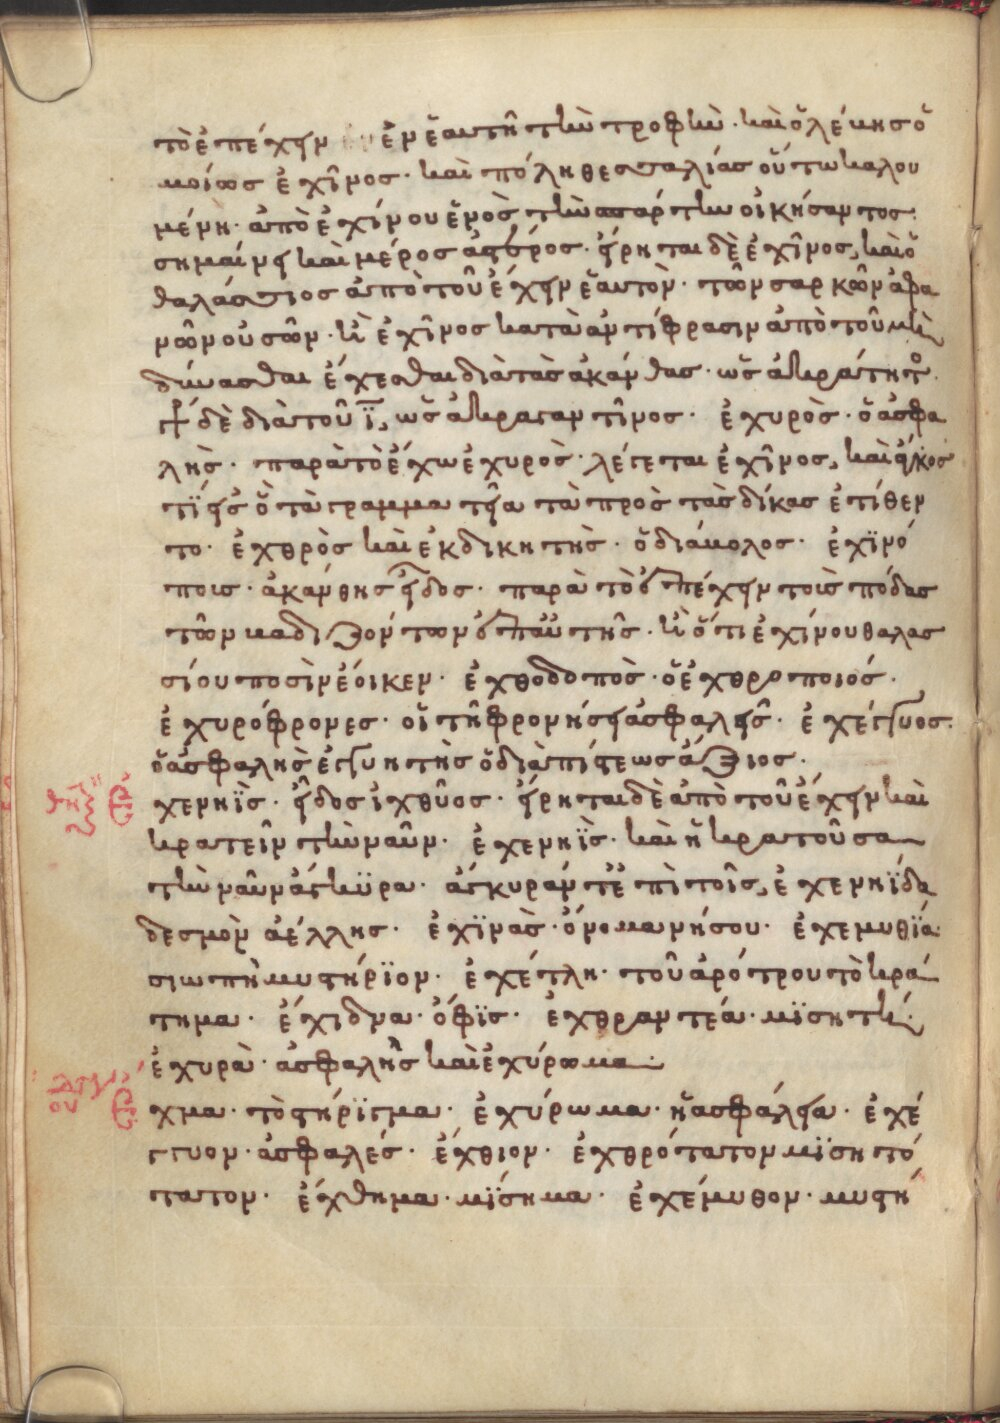 τὸ ἐπέχειν ἐν ἑαυτῆ τὴν τροφὴν · καὶ ὁ λέκης ὁ
μοίως ἐχῖνος · καὶ πόλη θεσσαλίας οὕτω καλου
μένη · ἀπὸ ἐχίνου ἑνὸς τῶν σπαρτῶν οἰκήσαντος ·
σημαίνει καὶ μέρος ἀστέρος · εἴρηται δὲ ἐχῖνος, καὶ ὁ
θαλάσσιος ἀπὸ τοῦ ἔχειν ἑαυτὸν · τῶν σαρκῶν ἀφα
νῶν οὐσῶν · ἢ ἐχῖνος κατὰ ἀντίφρασιν ἀπὸ τοῦ μὴ
δύνασθαι ἔχεσθαι διὰ τὰς ἀκάνθας · ὡς ἀκράτητος ·
δὲ διὰ τοῦ ϊ, ὡς ἀκραγαντῖνος · ἐχυρὸς · ὁ ἀσφα
λὴς · παρὰ τὸ ἔχω ἐχυρὸς · λέγεται ἐχῖνος, καὶ
τὶ εἰς ὃ τὰ γραμματεῖα τὰ πρὸς τὰς δίκας ἐτίθεν
το · ἐχθρὸς καὶ ἐκδικητὴς · ὁ διάβολος · ἐχϊνό
ποις · ἀκάνθης εἶδος · παρὰ τὸ ὑπέχειν τοὶς πόδας
τῶν βαδιζόντων ὑπ' αὐτῆς · ἢ ὅτι ἐχίνου θαλασ
σίου ποσὶν ἔοικεν · ἐχθοδοπὸς · ὁ ἐχθροποιός ·
ἐχυρόφρονες · οἱ τῆ φρονήσει ἀσφαλεῖς · ἐχέγγυος ·
ὁ ἀσφαλὴς ἐγγυητὴς ὁ διὰ πίστεως ἄξιος ·
χενηῒς · εἶδος ἰχθῦος · εἴρηται δὲ ἀπὸ τοῦ ἔχειν καὶ
κρατεῖν τὴν ναῦν · ἐχενηῒς · καὶ ἡ κρατοῦσα
τὴν ναῦν ἄγκϋρα · ἄγκυραν τ' ἐπὶ τοῖς, ἐχενηΐδα
δεσμὸν ἀέλλης · ἐχϊνὰς · ὄνομα νήσου · ἐχεμυθΐα ·
σιωπὴ μυστήρϊον · ἐχέτλη · τοῦ ἀρότρου τὸ κρά
τημα · ἔχιδνα · ὄφϊς · ἐχθραντέα · μϊσητὴ ·
ἐχυρὰ · ἀσφαλὴς καὶ ἐχύρωμα ·
χμα · τὸ στήρϊγμα · ἐχύρωμα · ἡ ἀσφάλεια · ἐχέ
γγυον · ἀσφαλές · ἔχθιον · ἐχθρότατον μϊσητό
τατον · ἔχθημα · μϊσημα · ἐχέμυθον · μυστή